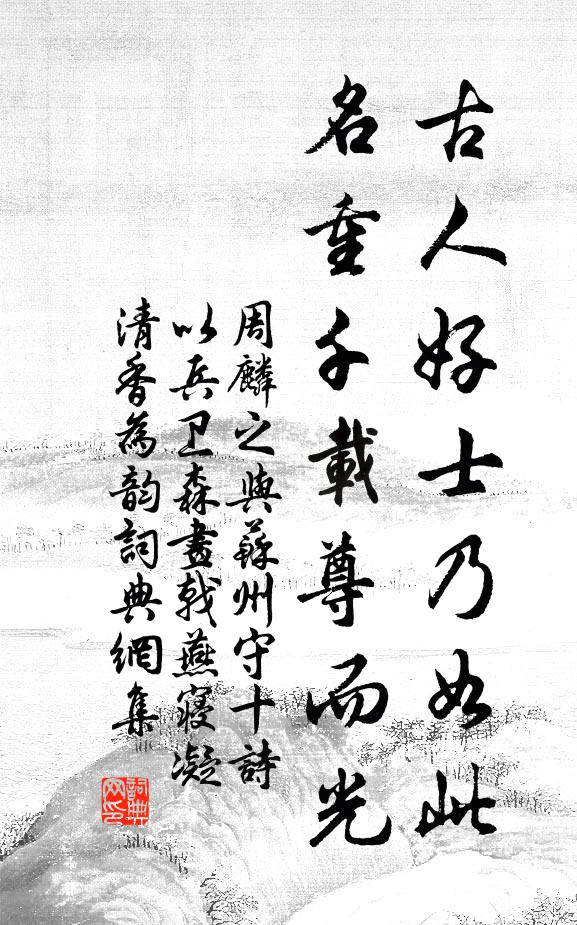 古人好士乃如此
名重千載尊而光
周麟之與蘇州守十詩
以兵卫森畫戟燕寢凝
清香為韵詞典網集
詞典网印